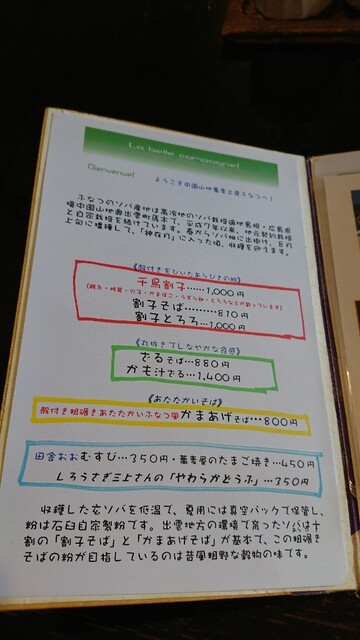 La belle campagne!
Bienvenue!
ようこそ中国山地蕎麦工房ふなつへ!
ふなつのソバ産地は高冷地のソバ栽培適地島根・広島県
境中国山地奥出雲町馬木で、平成7年以来、地元契約栽培
と自家栽培を続けています。春からソバ畑に出掛け、8月
上旬に播種して、「神在月」に入った頃、収穫を迎えます。
《殻付きをひいたあらびきの粉》
千鳥割子……1,000円
割子そば………810円
割子とろろ…1,000円
《丸抜きでしなやかな食感》
ざるそば…880円
かも汁ざる…1,400円
《あたたかいそば》
殻付き粗碾きあたたかいふなつ風 かまあげそば…800円
田舎おおむすび…350円・蕎麦屋のたまご焼き…450円
しろうさぎ三上さんの「やわらかとうふ」…350円
収穫した玄ソバを低温で、夏用には真空パックで保管し、
粉は石臼自家製粉です。出雲地方の環境で育ったソバは十
割の「割子そば」と「かまあげそば」が基本で、この粗碾き
そばの粉が目指しているのは昔風粗野な穀物の味です。